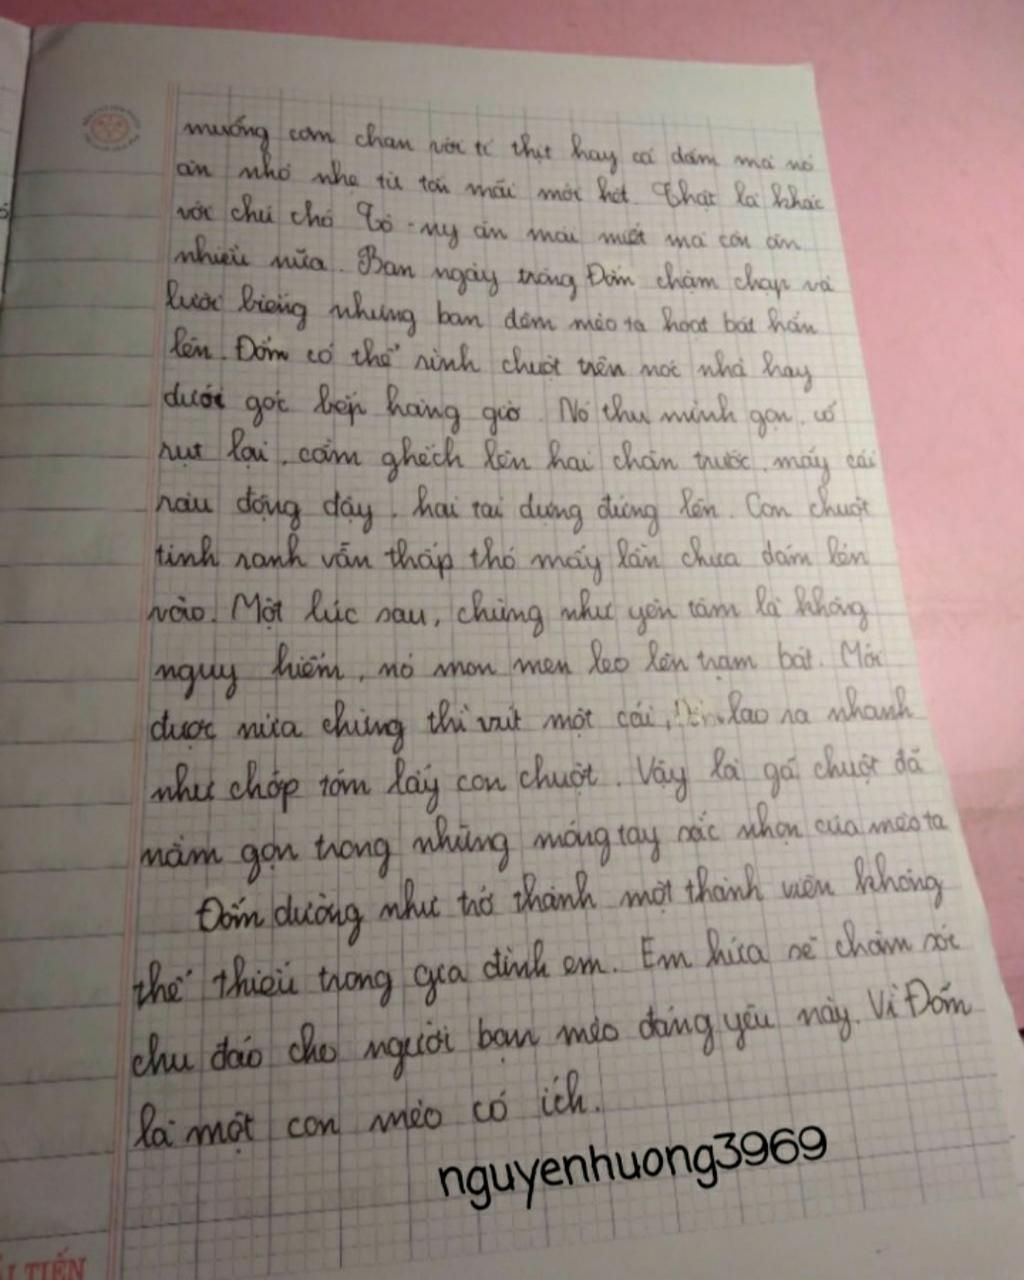 muống cơm chan với tí thịt hay cá dầm mà nó
ăn nhỏ nhẹ từ tốn mãi mới hết. Thật là khác
với chú chó Tô-ny ăn mải miết mà còn ăn
nhiều nữa. Ban ngày trông Đốm chậm chạp và
lười biếng nhưng ban đêm mèo ta hoạt bát hẳn
lên. Đốm có thể rình chuột trên nóc nhà hay
dưới góc bếp hàng giờ. Nó thu mình gọn, cổ
rụt lại, cằm ghếch lên hai chân trước, mấy cái
râu động đậy, hai tai dựng đứng lên. Con chuột
tinh ranh vẫn thập thó mấy lần chưa dám lẻn
vào. Một lúc sau, chừng như yên tâm là không
nguy hiểm, nó mon men leo lên trạm bát. Mới
được nửa chừng thì vút một cái, lao ra nhanh
như chớp tóm lấy con chuột. Vậy là gã chuột đã
nằm gọn trong những móng tay sắc nhọn của mèo ta
Đốm dường như trở thành một thành viên không
thể thiếu trong gia đình em. Em hứa sẽ chăm sóc
chu đáo cho người bạn mèo đáng yêu này. Vì Đốm
là một con mèo có ích.
nguyenhuong3969
TIẾN